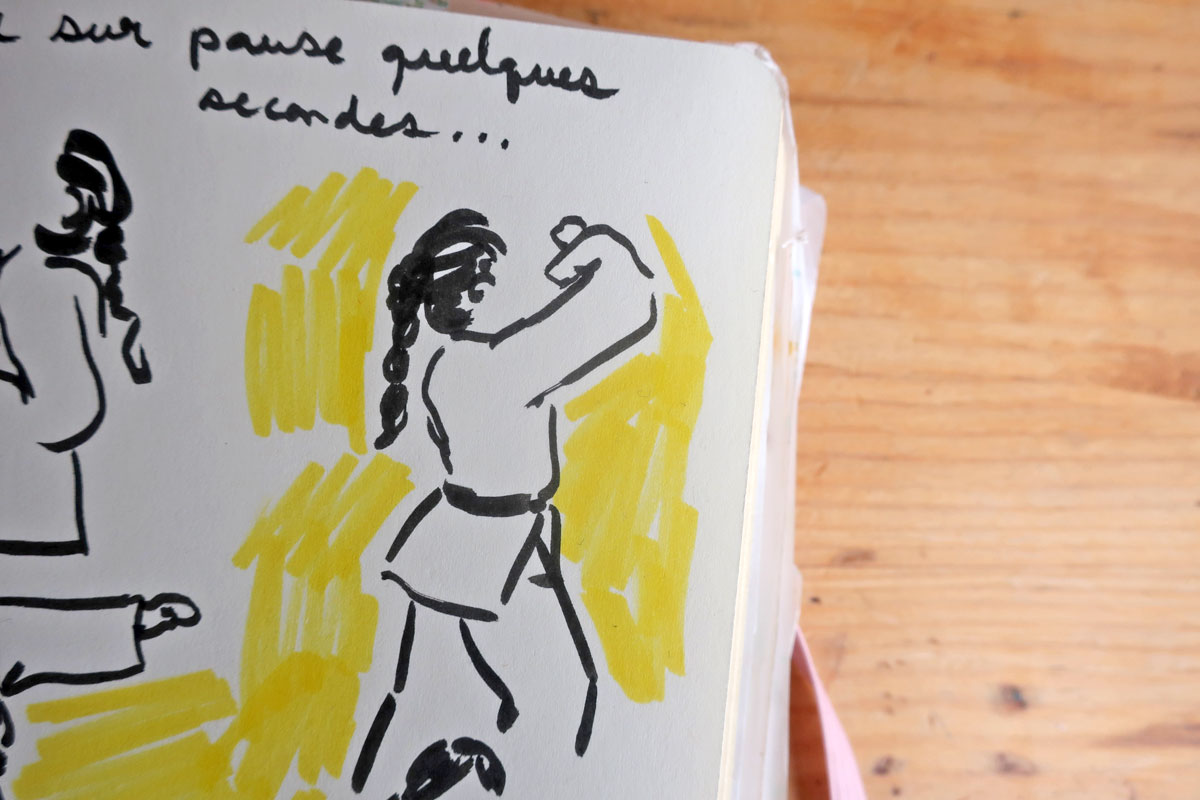 sur pause quelques
secondes...